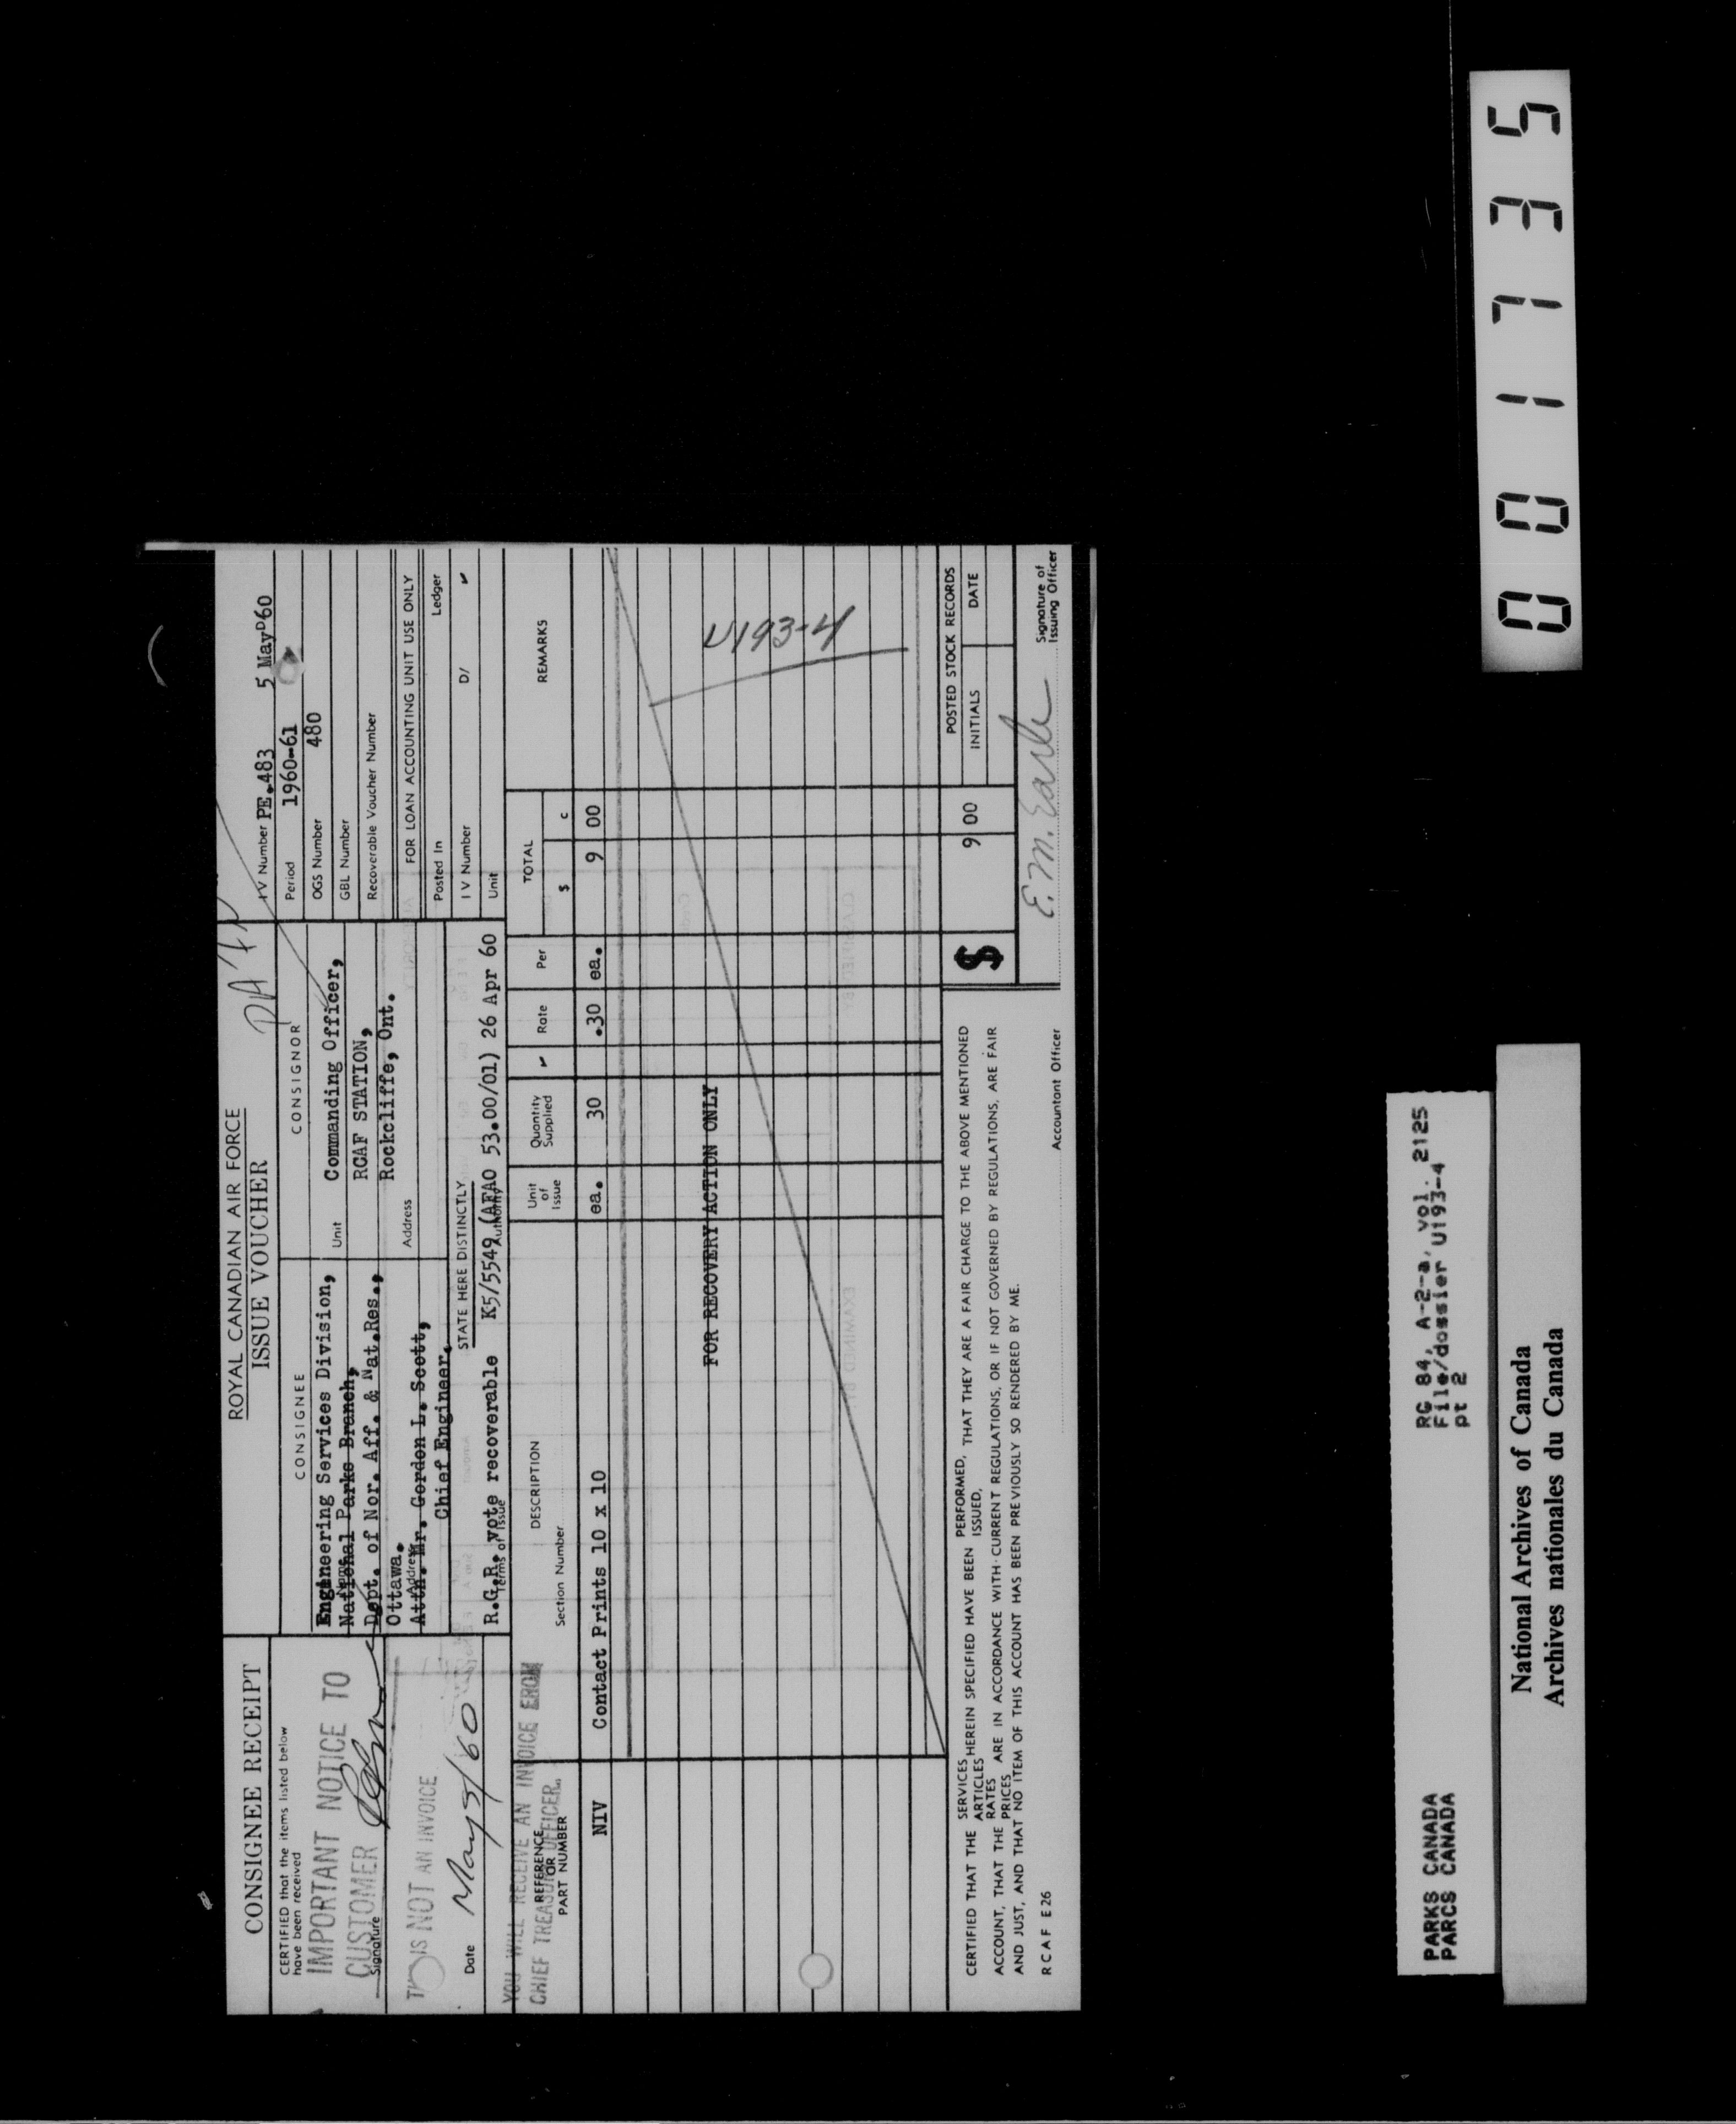 ROYAL CANADIAN AIR FORCE
ISSUE VOUCHER
CONSIGNEE RECEIPT
CERTIFIED that the items listed below
have been received
IMPORTANT NOTICE TO
CUSTOMER
Signature
IS NOT AN INVOICE
Date May 9/60
YOU WILL RECEIVE AN INVOICE FROM
CHIEF TREASURY OFFICER.
CONSIGNEE
Engineering Services Division,
Name
National Parks Branch,
Dept. of Nor. Aff. & Nat.Res.,
Ottawa.
Address
Attn. Mr. Gordon L. Scott,
Chief Engineer.
CONSIGNOR
Unit
Commanding Officer,
RCAF STATION,
Rockcliffe, Ont.
Address
STATE HERE DISTINCTLY
R.G.R. vote recoverable K5/5549 (AFAO 53.00/01) 26 Apr 60
Terms of Issue
Authority
I V Number PE.483 5 May 60
Period 1960-61
OGS Number 480
GBL Number
Recoverable Voucher Number
FOR LOAN ACCOUNTING UNIT USE ONLY
Posted In Ledger
I V Number D/
Unit
REFERENCE
OR
PART NUMBER
Section Number
DESCRIPTION
Unit
of
Issue
Quantity
Supplied
Rate
Per
TOTAL
$ c
REMARKS
NIV Contact Prints 10 x 10 ea. 30 .30 ea. 9 00
FOR RECOVERY ACTION ONLY
U193-4
CERTIFIED THAT THE SERVICES ARTICLES HEREIN SPECIFIED HAVE BEEN PERFORMED, ISSUED, THAT THEY ARE A FAIR CHARGE TO THE ABOVE MENTIONED
ACCOUNT, THAT THE RATES PRICES ARE IN ACCORDANCE WITH CURRENT REGULATIONS, OR IF NOT GOVERNED BY REGULATIONS, ARE FAIR
AND JUST, AND THAT NO ITEM OF THIS ACCOUNT HAS BEEN PREVIOUSLY SO RENDERED BY ME.
$ 9 00
POSTED STOCK RECORDS
INITIALS DATE
RCAF E26
Accountant Officer
E. M. Earle
Signature of
Issuing Officer
001735
PARKS CANADA
PARCS CANADA
RG 84, A-2-a, vol. 2125
File/dossier U193-4
pt 2
National Archives of Canada
Archives nationales du Canada